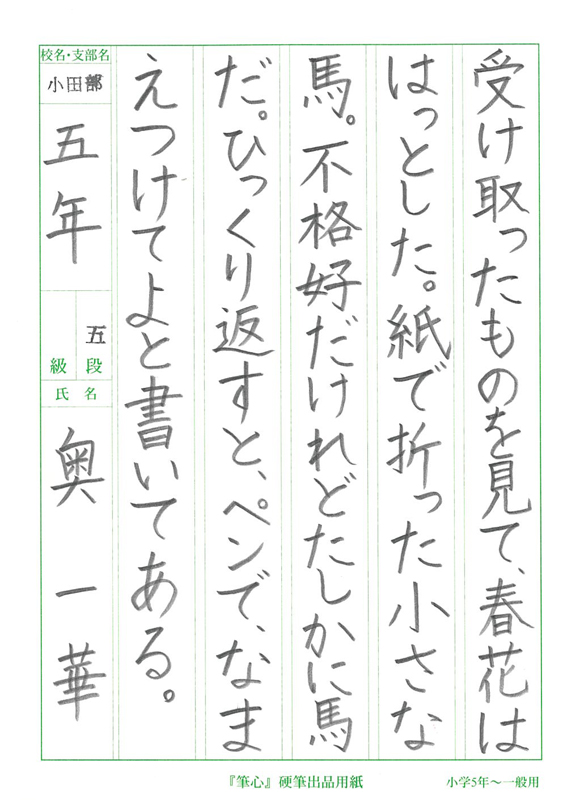 受け取ったものを見て、春花は
はっとした。紙で折った小さな
馬。不格好だけれどたしかに馬
だ。ひっくり返すと、ペンで、なま
えつけてよと書いてある。
校名・支部名
小田部
五年
五段
級
氏名
奥一華
『筆心』硬筆出品用紙
小学5年〜一般用